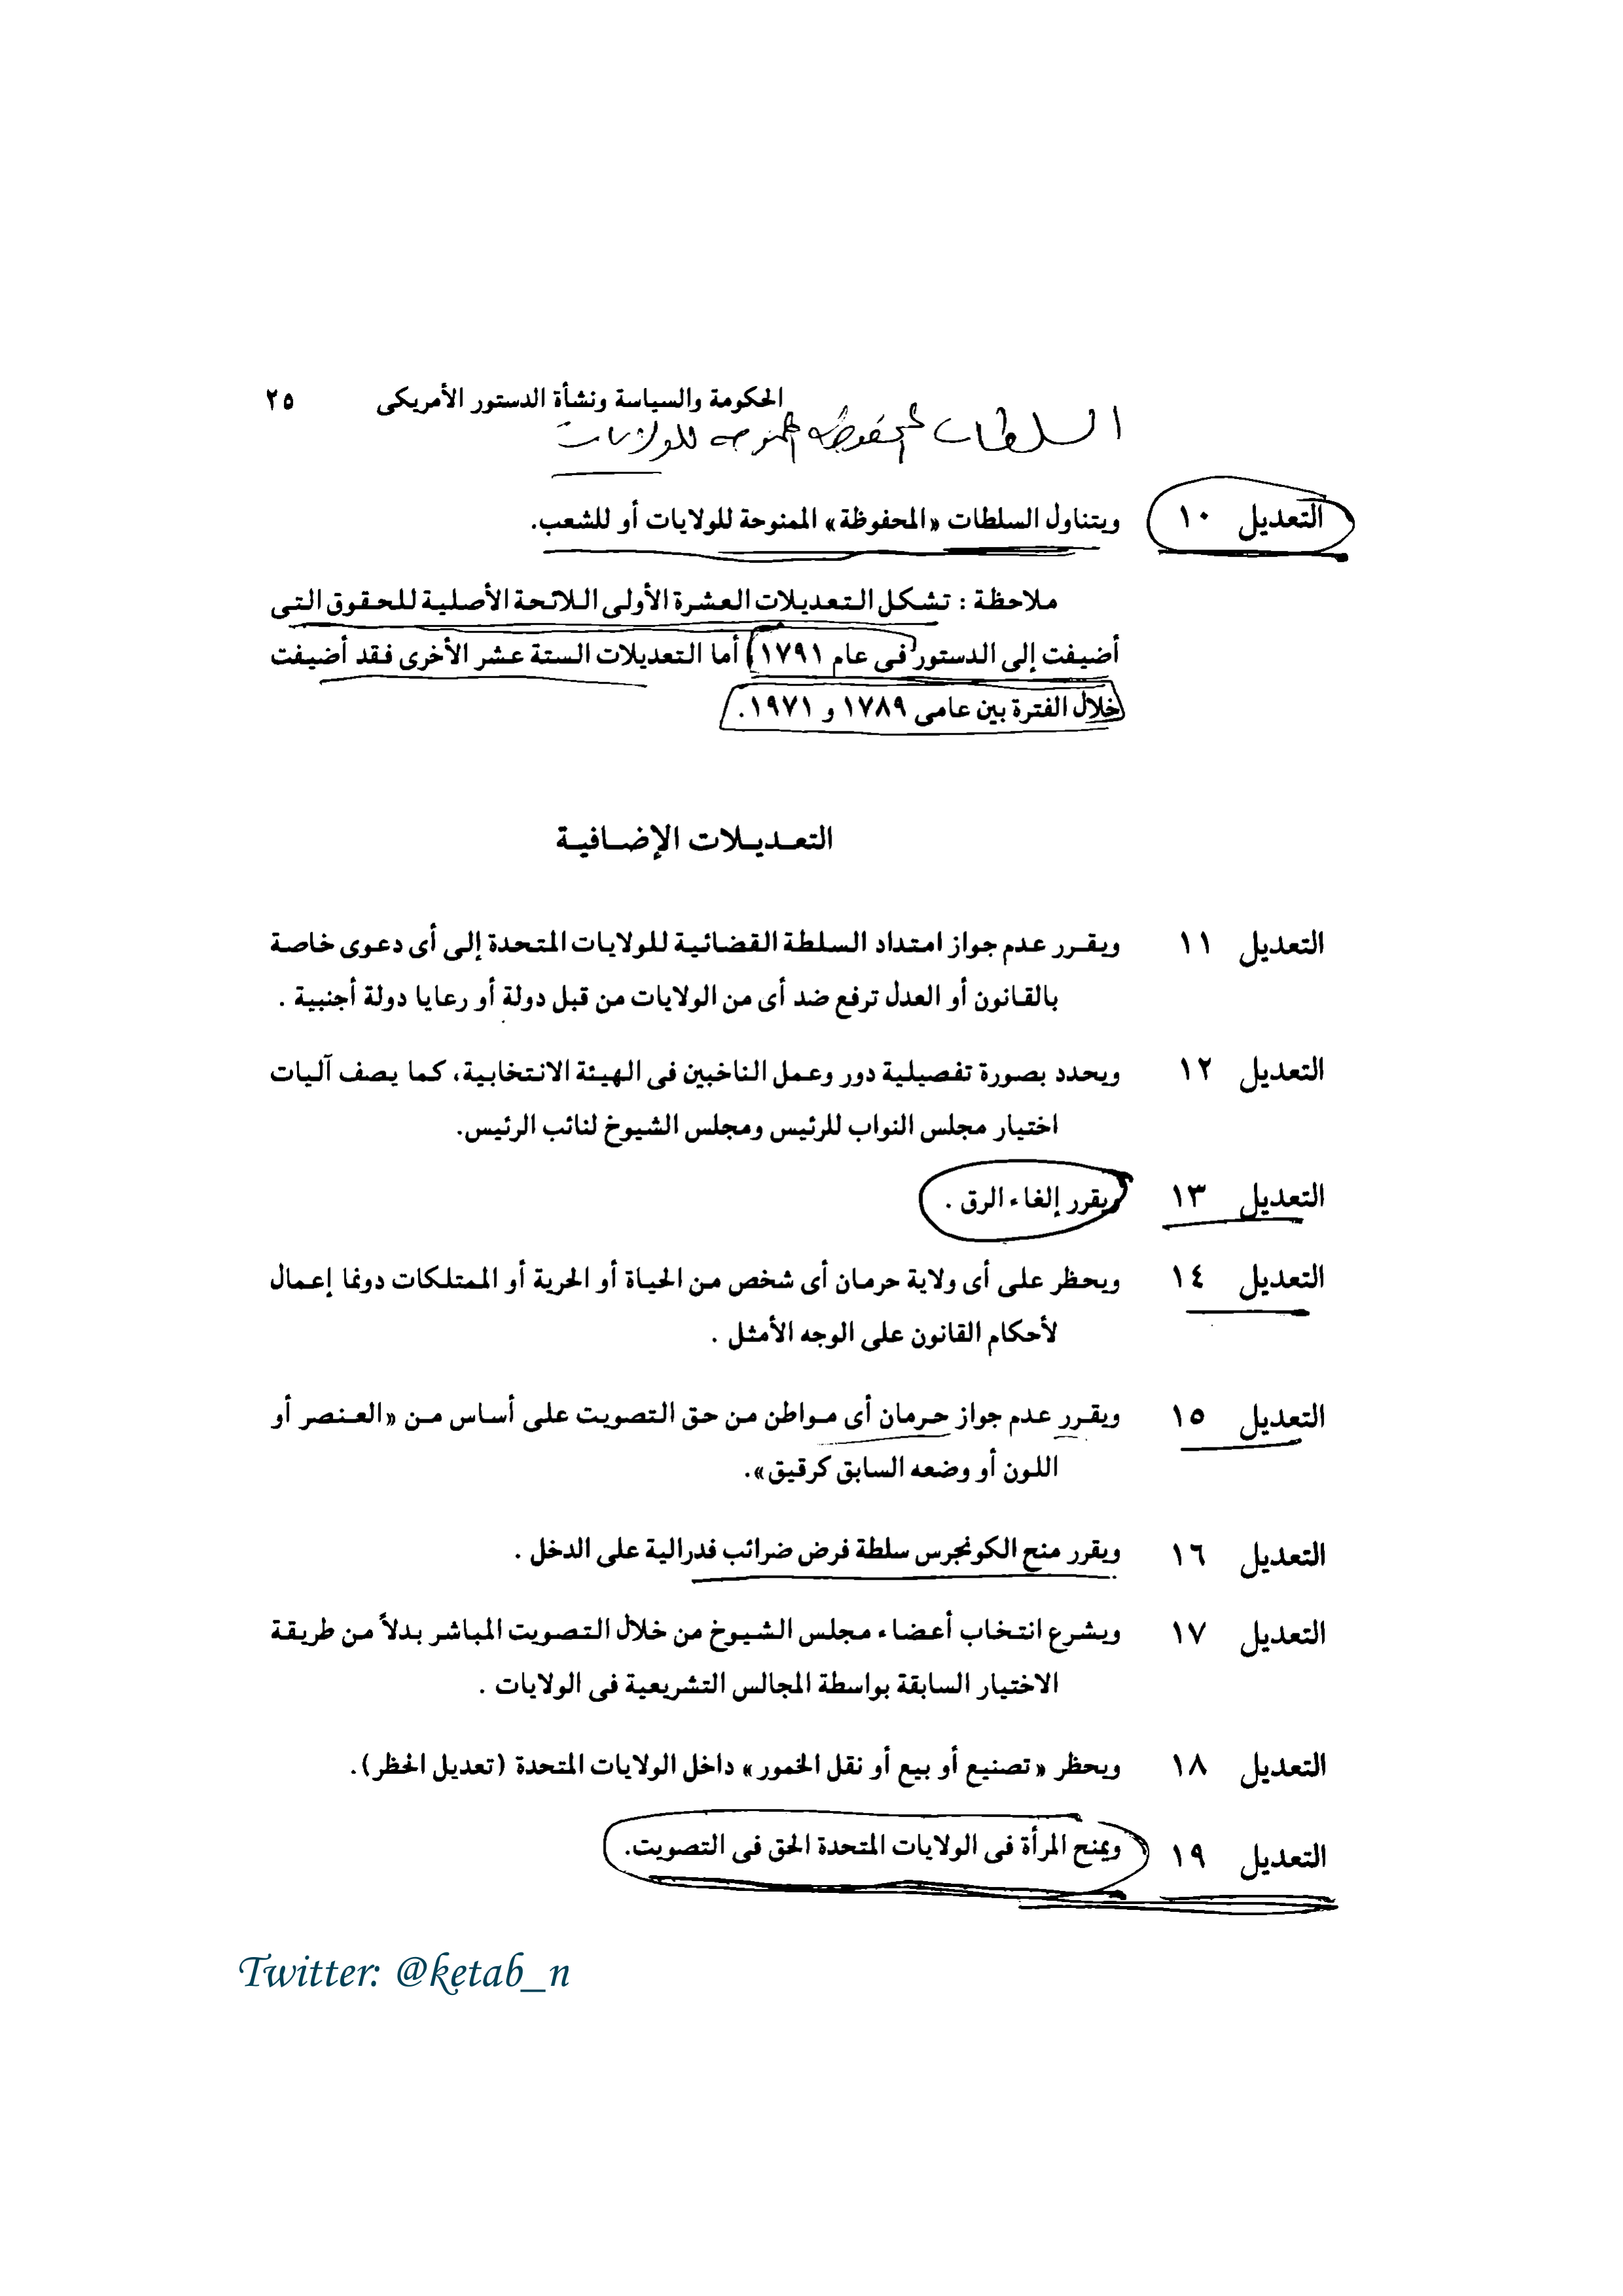 الحكومة والسياسة ونشأة الدستور الأمريكى ٢٥
السلطات المحفوظة الممنوحة للولايات
التعديل ١٠ ويتناول السلطات «المحفوظة» الممنوحة للولايات أو للشعب.
ملاحظة : تشكل التعديلات العشرة الأولى اللائحة الأصلية للحقوق التى
أضيفت إلى الدستور فى عام ١٧٩١ أما التعديلات الستة عشر الأخرى فقد أضيفت
خلال الفترة بين عامى ١٧٨٩ و ١٩٧١.
التعديلات الإضافية
التعديل ١١ ويقرر عدم جواز امتداد السلطة القضائية للولايات المتحدة إلى أى دعوى خاصة
بالقانون أو العدل ترفع ضد أى من الولايات من قبل دولة أو رعايا دولة أجنبية .
التعديل ١٢ ويحدد بصورة تفصيلية دور وعمل الناخبين فى الهيئة الانتخابية، كما يصف آليات
اختيار مجلس النواب للرئيس ومجلس الشيوخ لنائب الرئيس.
التعديل ١٣ ويقرر إلغاء الرق .
التعديل ١٤ ويحظر على أى ولاية حرمان أى شخص من الحياة أو الحرية أو الممتلكات دونما إعمال
لأحكام القانون على الوجه الأمثل .
التعديل ١٥ ويقرر عدم جواز حرمان أى مواطن من حق التصويت على أساس من «العنصر أو
اللون أو وضعه السابق كرقيق».
التعديل ١٦ ويقرر منح الكونجرس سلطة فرض ضرائب فدرالية على الدخل .
التعديل ١٧ ويشرع انتخاب أعضاء مجلس الشيوخ من خلال التصويت المباشر بدلاً من طريقة
الاختيار السابقة بواسطة المجالس التشريعية فى الولايات .
التعديل ١٨ ويحظر «تصنيع أو بيع أو نقل الخمور» داخل الولايات المتحدة (تعديل الحظر).
التعديل ١٩ ويمنح المرأة فى الولايات المتحدة الحق فى التصويت.
Twitter: @ketab_n